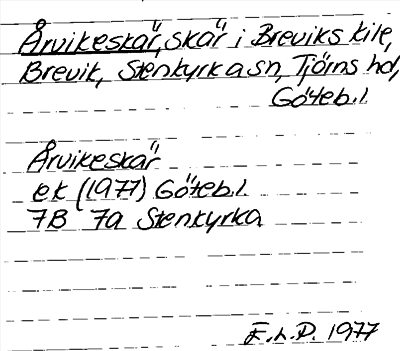 Årvikeskär, skär i Breviks kile,
Brevik, Stenkyrka sn, Tjörns hd,
Göteb.l.
Årvikeskär
ek (1977) Göteb.l.
7B 7a Stenkyrka
E.h.D. 1977